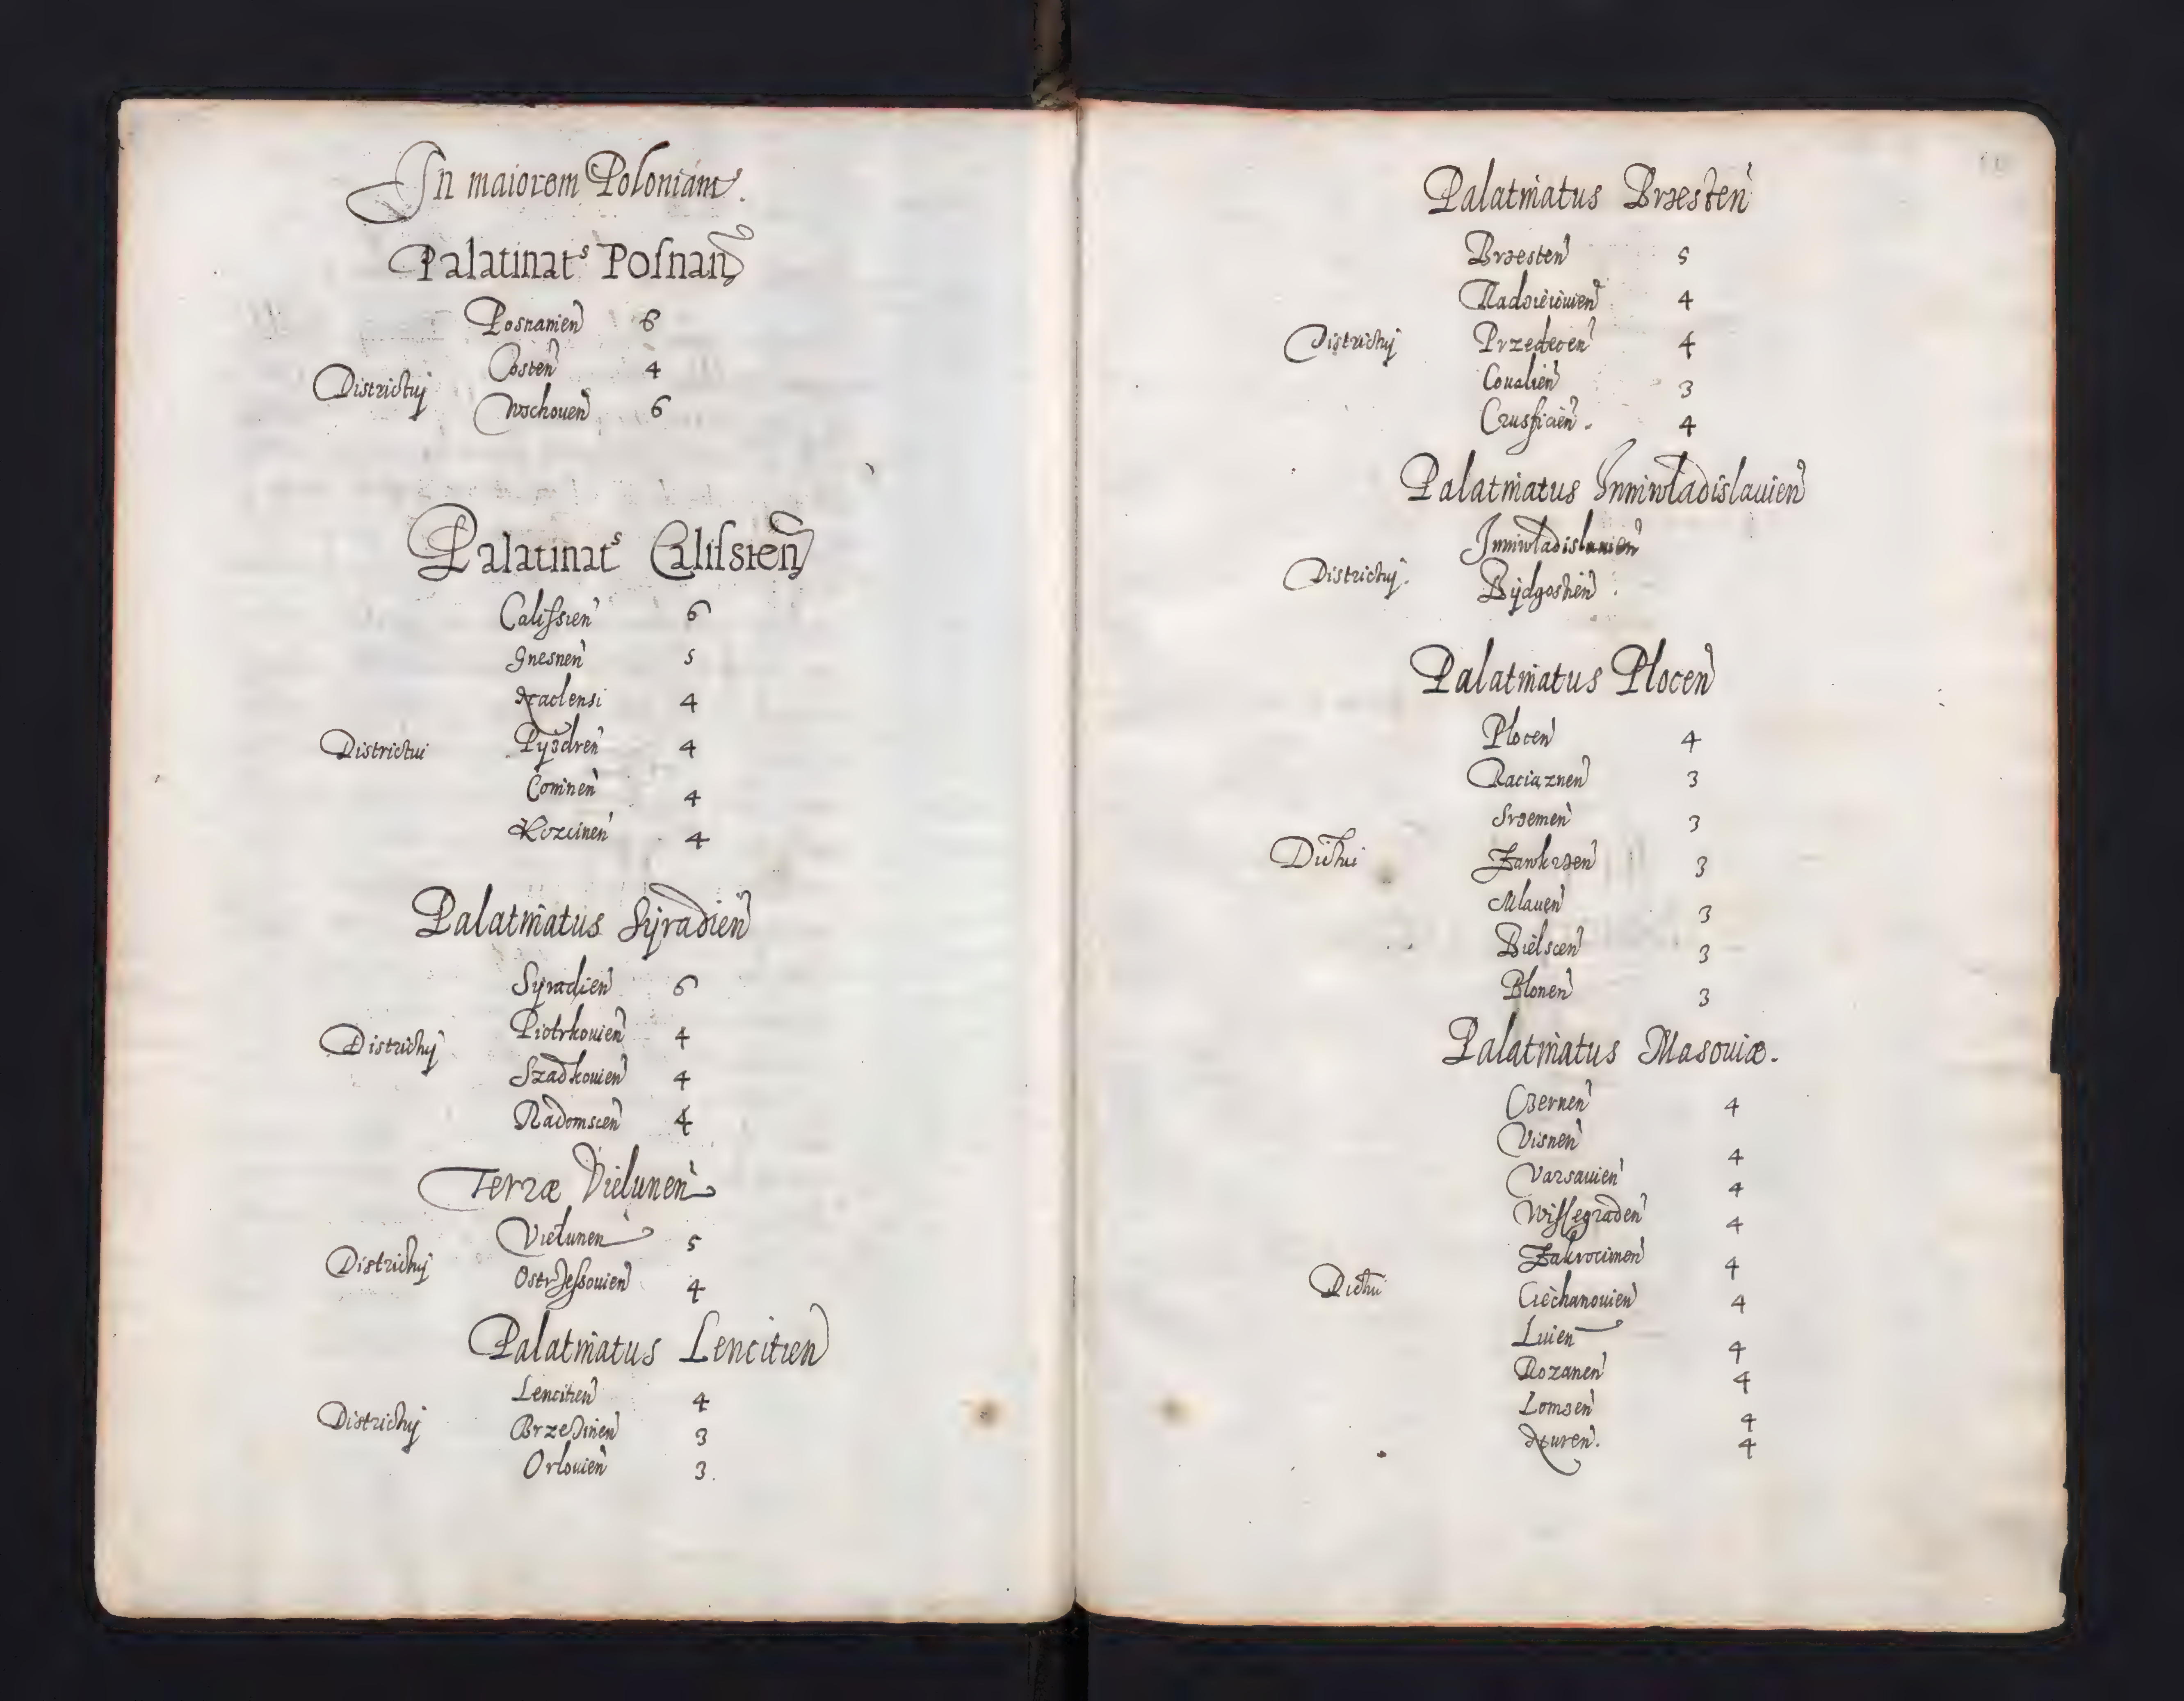 In maiorem Poloniam.
Palatinatˢ Posnan̄
Posnanien̄ 6
Costen̄ 4
Districtuj
Wschouen̄ 6
Palatinatˢ Calissien̄
Calissien̄ 6
Gnesnen̄ 5
Naclensi 4
Districtui Pyzdren̄ 4
Coninen̄ 4
Kcscinen̄ 4
Palatinatus Syradien̄
Syradien̄ 6
Districtuj Piotrkouien̄ 4
Szadkouien̄ 4
Radomscen̄ 4
Terræ Vielunen̄
Vielunen̄ 5
Districtuj Ostrzessouien̄ 4
Palatinatus Lencitien̄
Lencitien̄ 4
Districtuj Brzezinen̄ 3
Orlouien̄ 3
Palatinatus Brzesten̄
Brzesten̄ 5
Radzieiouien̄ 4
Districtuj Przedecen̄ 4
Coualien̄ 3
Crusficien̄. 4
Palatinatus Inniwladislauien̄
Inniwladislauien̄
Districtuj. Bijdgostien̄
Palatinatus Plocen̄
Plocen̄ 4
Raciąznen̄ 3
Srzemen̄ 3
Dictui Zawkrzen̄ 3
Mlauen̄ 3
Bielscen̄ 3
Plonen̄ 3
Palatinatus Masouiæ.
Czernen̄ 4
Visnen̄ 4
Varsauien̄ 4
Wissegraden̄ 4
Zakrocimen̄ 4
Dictui Ciechanouien̄ 4
Luien̄ 4
Rozanen̄ 4
Lomzen̄ 4
Nuren̄. 4